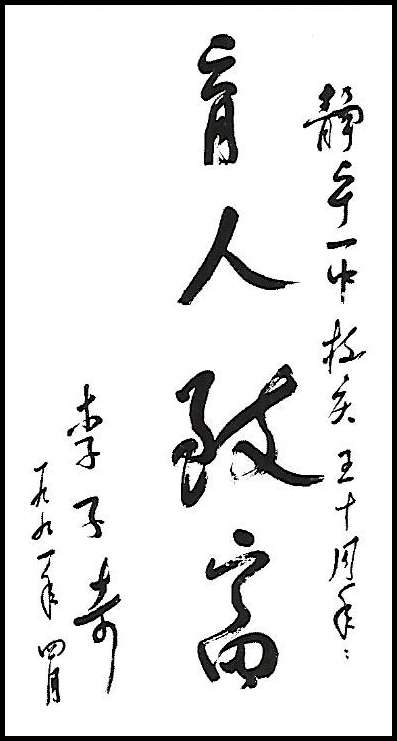 静宁一中校庆五十周年:
育人致富
李子奇
一九九一年四月